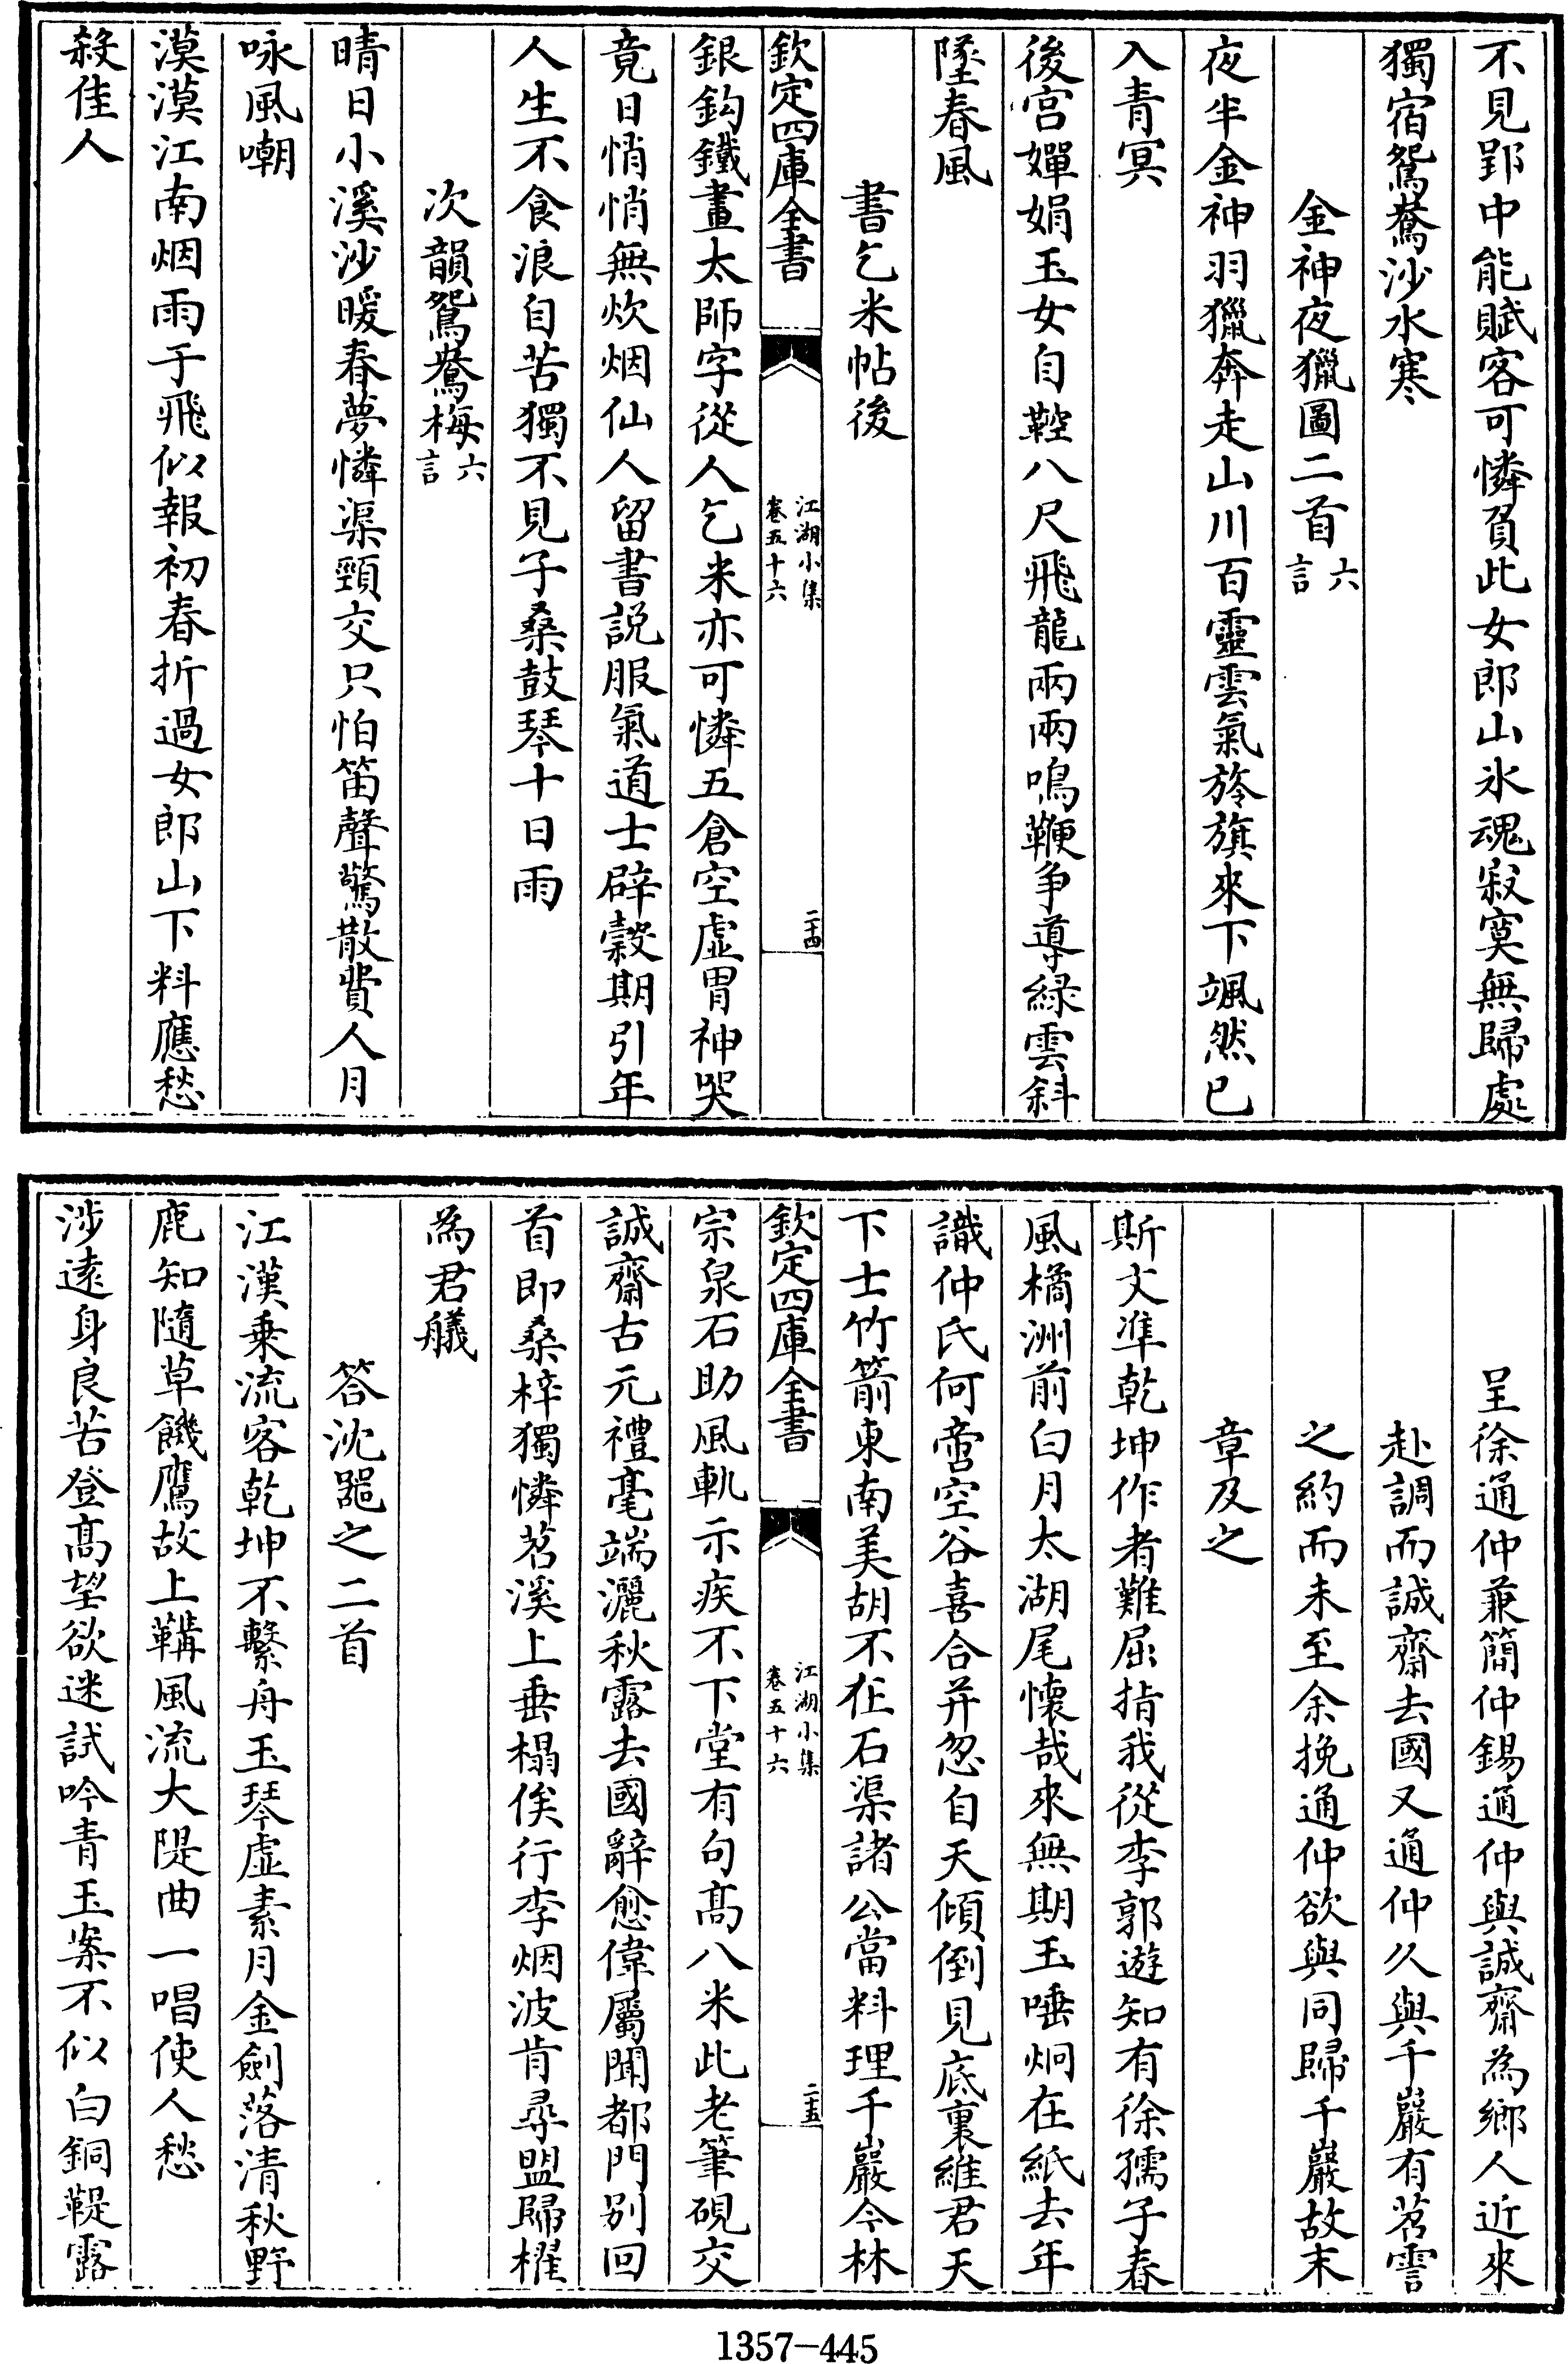 不見郢中能賦客可憐負此女郎山氷魂寂寞無歸處
獨宿鴛鴦沙水寒
金神夜獵圖二首六言
夜半金神羽獵奔走山川百靈雲氣旍旗來下颯然已
入青冥
後宫嬋娟玉女自鞚八尺飛龍兩兩鳴鞭争導緑雲斜
墜春風
書乞米帖後
欽定四庫全書
江湖小集
卷五十六
二十四
銀鈎鐵畫太師字從人乞米亦可憐五倉空虛胃神哭
竟日悄悄無炊烟仙人留書説服氣道士辟穀期引年
人生不食浪自苦獨不見子桑鼓琴十日雨
次韻鴛鴦梅六言
晴日小溪沙暖春夢憐渠頸交只怕笛聲驚散費人月
咏風嘲
漠漠江南烟雨于飛似報初春折過女郎山下料應愁
殺佳人
呈徐通仲兼簡仲錫通仲與誠齋為鄉人近來
赴調而誠齋去國又通仲久與千巖有苕霅
之約而未至余挽通仲欲與同歸千巖故末
章及之
斯文準乾坤作者難屈指我從李郭遊知有徐孺子春
風橘洲前白月太湖尾懷哉來無期玉唾炯在紙去年
識仲氏何啻空谷喜合并忽自天傾倒見底裏維君天
下士竹箭東南美胡不在石渠諸公當料理千巖今林
欽定四庫全書
江湖小集
卷五十六
二十五
宗泉石助風軌示疾不下堂有句髙八米此老筆硯交
誠齋古元禮毫端灑秋露去國辭愈偉屬聞都門别回
首即桑梓獨憐苕溪上垂榻俟行李烟波肯尋盟歸櫂
為君艤
答沈器之二首
江漢乗流客乾坤不繫舟玉琴虛素月金劍落清秋野
鹿知隨草饑鷹故上韝風流大隄曲一唱使人愁
涉遠身良苦登髙望欲迷試吟青玉案不似白銅鞮露
1357-445